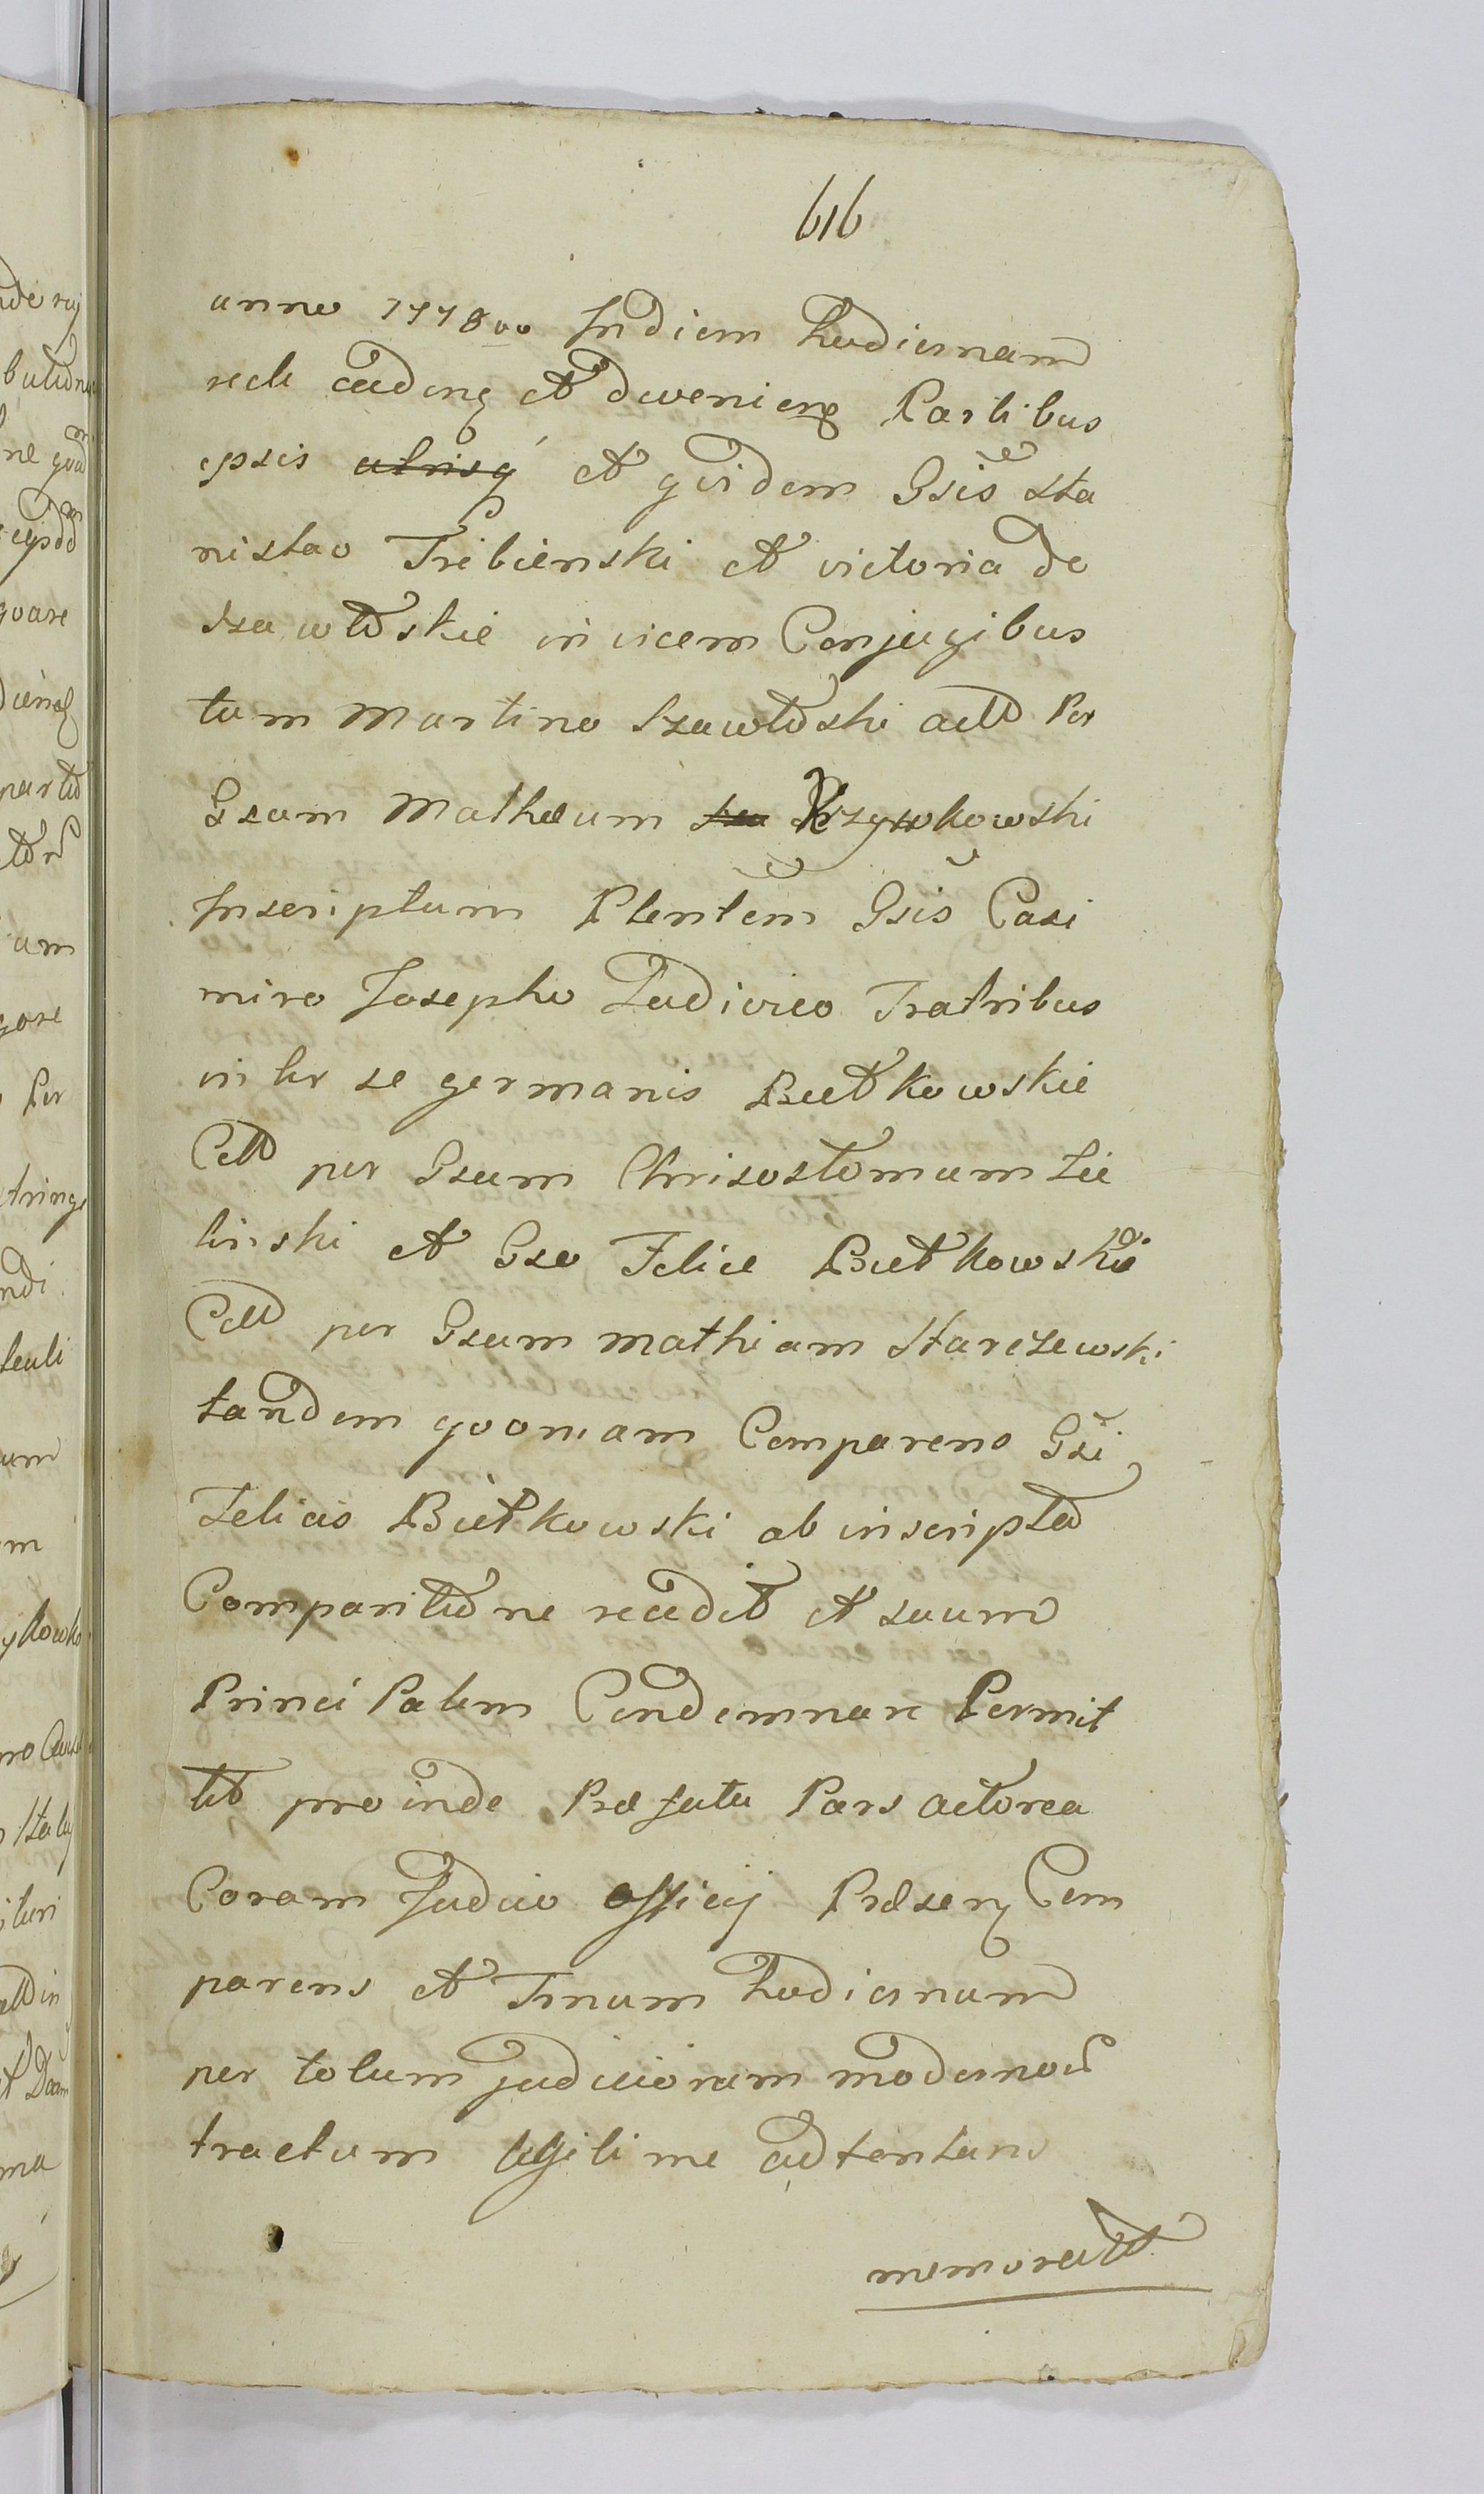 616
anno 1778vo In diem hodiernam
recte cadeng et dveniens Partibus
ipsis utrisq et qvidem Gsis Sta
nislao Trebienski et victoria de
Szawłdskie invicem Conjugibus
tum Martino Szawłdski actd Per
Gsum Mathæum Krzywkowski
Inscriptum Plentem Gsis Casi
miro Josepho Ludivico Fratribus
inter se germanis Bietkowskie
Cttd per Gsum Chrisostomum Zie
linski et Gso Felice Bietkowski
Cttd per Gsum Mathiam Starczewski
tandem qvoniam Comparens Gsi
Felicis Bietkowski ab inscripta
Comparitione recedit et suum
Princi Palem Condemnare Permit
tit pro inde Præfata Pars actorea
Coram Judicio officij Præsen Com
parens et Trnum hodiernum
per totum judiciorum modernor
tractum legitime adtentans
memorat